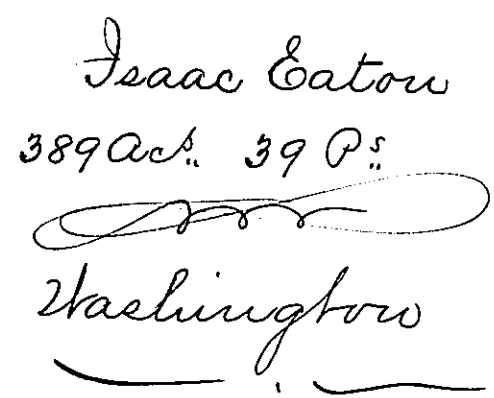 Isaac Eaton
389 Acs. 39 Ps.
Washington